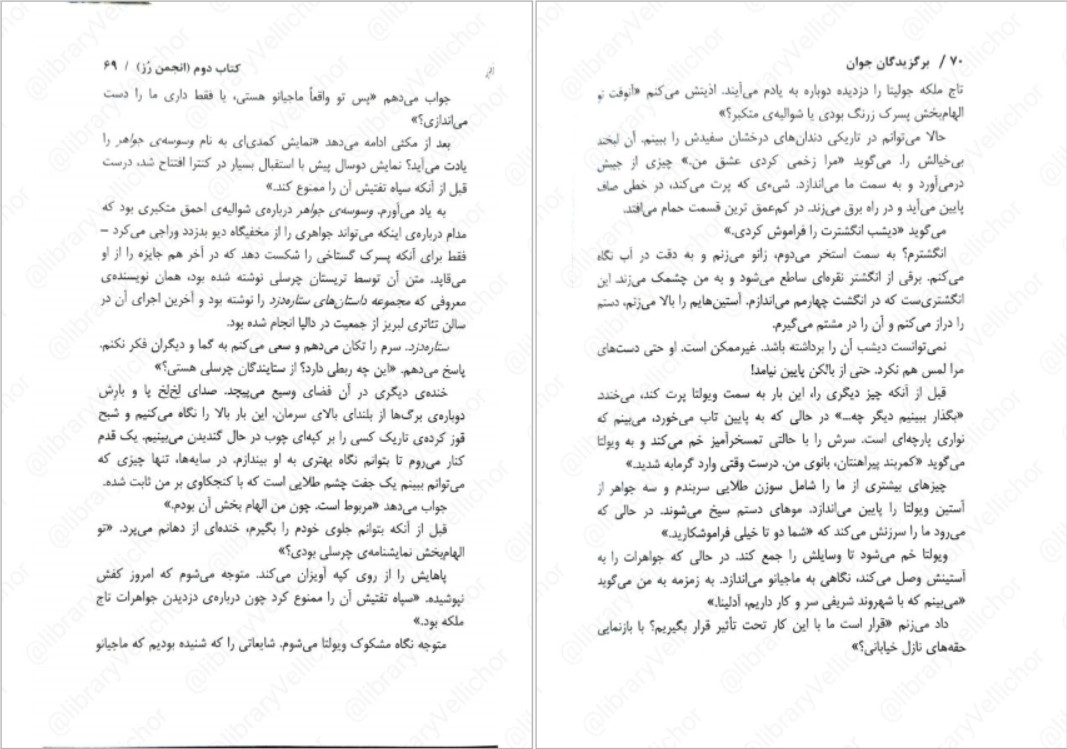 کتاب دوم (انجمن رُز) / ۶۹
جواب می‌دهم «پس تو واقعاً ماجیانو هستی، یا فقط داری ما را دست
می‌اندازی؟»
بعد از مکثی ادامه می‌دهد «نمایش کمدی‌ای به نام وسوسه‌ی جواهر را
یادت می‌آید؟ نمایش دوسال پیش با استقبال بسیار در کنترا افتتاح شد، درست
قبل از آنکه سپاه تفتیش آن را ممنوع کند.»
به یاد می‌آورم. وسوسه‌ی جواهر درباره‌ی شوالیه‌ی احمق متکبری بود که
مدام درباره‌ی اینکه می‌تواند جواهری را از مخفیگاه دیو بدزدد وراجی می‌کرد –
فقط برای آنکه پسرک گستاخی را شکست دهد که در آخر هم جایزه را از او
می‌قاپد. متن آن توسط تریستان چرسلی نوشته شده بود، همان نویسنده‌ی
معروفی که مجموعه داستان‌های ستاره‌دزد را نوشته بود و آخرین اجرای آن در
سالن تئاتری لبریز از جمعیت در دالیا انجام شده بود.
ستاره‌دزد. سرم را تکان می‌دهم و سعی می‌کنم به گما و دیگران فکر نکنم.
پاسخ می‌دهم. «این چه ربطی دارد؟ از ستایندگان چرسلی هستی؟»
خنده‌ی دیگری در آن فضای وسیع می‌پیچد. صدای لخ‌لخ پا و بارش
دوباره‌ی برگ‌ها از بلندای بالای سرمان. این بار بالا را نگاه می‌کنیم و شبح
قوز کرده‌ی تاریک کسی را بر کپه‌ای چوب در حال گندیدن می‌بینیم. یک قدم
کنار می‌روم تا بتوانم نگاه بهتری به او بیندازم. در سایه‌ها، تنها چیزی که
می‌توانم ببینم یک جفت چشم طلایی است که با کنجکاوی بر من ثابت شده.
جواب می‌دهد «مربوط است. چون من الهام بخش آن بودم.»
قبل از آنکه بتوانم جلوی خودم را بگیرم، خنده‌ای از دهانم می‌پرد. «تو
الهام‌بخش نمایشنامه‌ی چرسلی بودی؟»
پاهایش را از روی کپه آویزان می‌کند. متوجه می‌شوم که امروز کفش
نپوشیده. «سپاه تفتیش آن را ممنوع کرد چون درباره‌ی دزدیدن جواهرات تاج
ملکه بود.»
متوجه نگاه مشکوک ویولتا می‌شوم. شایعاتی را که شنیده بودیم که ماجیانو
۷۰ / برگزیدگان جوان
تاج ملکه جولیتا را دزدیده دوباره به یادم می‌آیند. اذیتش می‌کنم «آنوقت تو
الهام‌بخش پسرک زرنگ بودی یا شوالیه‌ی متکبر؟»
حالا می‌توانم در تاریکی دندان‌های درخشان سفیدش را ببینم. آن لبخند
بی‌خیالش را. می‌گوید «مرا زخمی کردی عشق من.» چیزی از جیبش
درمی‌آورد و به سمت ما می‌اندازد. شیءی که پرت می‌کند، در خطی صاف
پایین می‌آید و در راه برق می‌زند. در کم‌عمق ترین قسمت حمام می‌افتد.
می‌گوید «دیشب انگشترت را فراموش کردی.»
انگشترم؟ به سمت استخر می‌دوم، زانو می‌زنم و به دقت در آب نگاه
می‌کنم. برقی از انگشتر نقره‌ای ساطع می‌شود و به من چشمک می‌زند. این
انگشتری‌ست که در انگشت چهارمم می‌اندازم. آستین‌هایم را بالا می‌زنم، دستم
را دراز می‌کنم و آن را در مشتم می‌گیرم.
نمی‌توانست دیشب آن را برداشته باشد. غیرممکن است. او حتی دست‌های
مرا لمس هم نکرد. حتی از بالکن پایین نیامد!
قبل از آنکه چیز دیگری را، این بار به سمت ویولتا پرت کند، می‌خندد.
«بگذار ببینیم دیگر چه...» در حالی که به پایین تاب می‌خورد، می‌بینم که
نواری پارچه‌ای است. سرش را با حالتی تمسخرآمیز خم می‌کند و به ویولتا
می‌گوید «کمربند پیراهنتان، بانوی من. درست وقتی وارد گرمابه شدید.»
چیزهای بیشتری از ما را شامل سوزن طلایی سربندم و سه جواهر از
آستین ویولتا را پایین می‌اندازد. موهای دستم سیخ می‌شوند. در حالی که
می‌رود ما را سرزنش می‌کند که «شما دو تا خیلی فراموشکارید.»
ویولتا خم می‌شود تا وسایلش را جمع کند. در حالی که جواهرات را به
آستینش وصل می‌کند، نگاهی به ماجیانو می‌اندازد. به زمزمه به من می‌گوید
«می‌بینم که با شهروند شریفی سر و کار داریم، آدلینا.»
داد می‌زنم «قرار است ما با این کار تحت تأثیر قرار بگیریم؟ با بازنمایی
حقه‌های نازل خیابانی؟»
@libraryVellichor